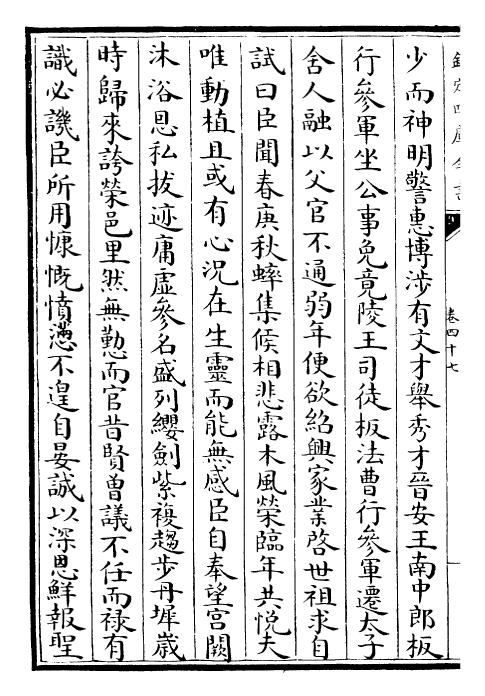 欽定四庫全書
卷四十七
少而神明警惠博涉有文才舉秀才晉安王南中郎板
行參軍坐公事免竟陵王司徒板法曹行參軍遷太子
舍人融以父官不通弱年便欲紹興家業啓世祖求自
試曰臣聞春庚秋蟀集候相悲露木風榮臨年共悦夫
唯動植且或有心況在生靈而能無感臣自奉望宮闕
沐浴恩私拔迹庸虚參名盛列纓劍紫複趨步丹墀歲
時歸來誇榮邑里然無勤而官昔賢曾議不任而禄有
識必譏臣所用慷慨憤懣不遑自晏誠以深恩鮮報聖